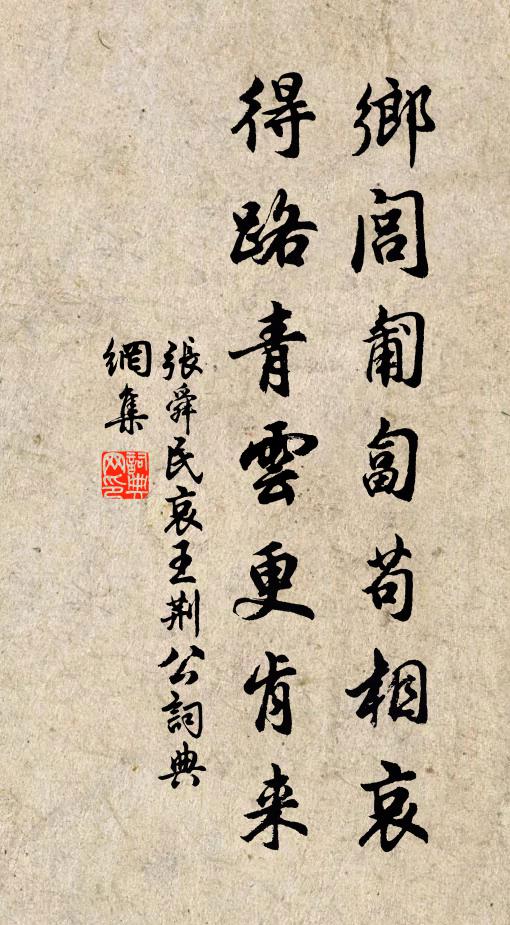 鄉閭匍匐苟相哀
得路青雲更肯来
張舜民哀王荆公詞典
網集
詞典網印